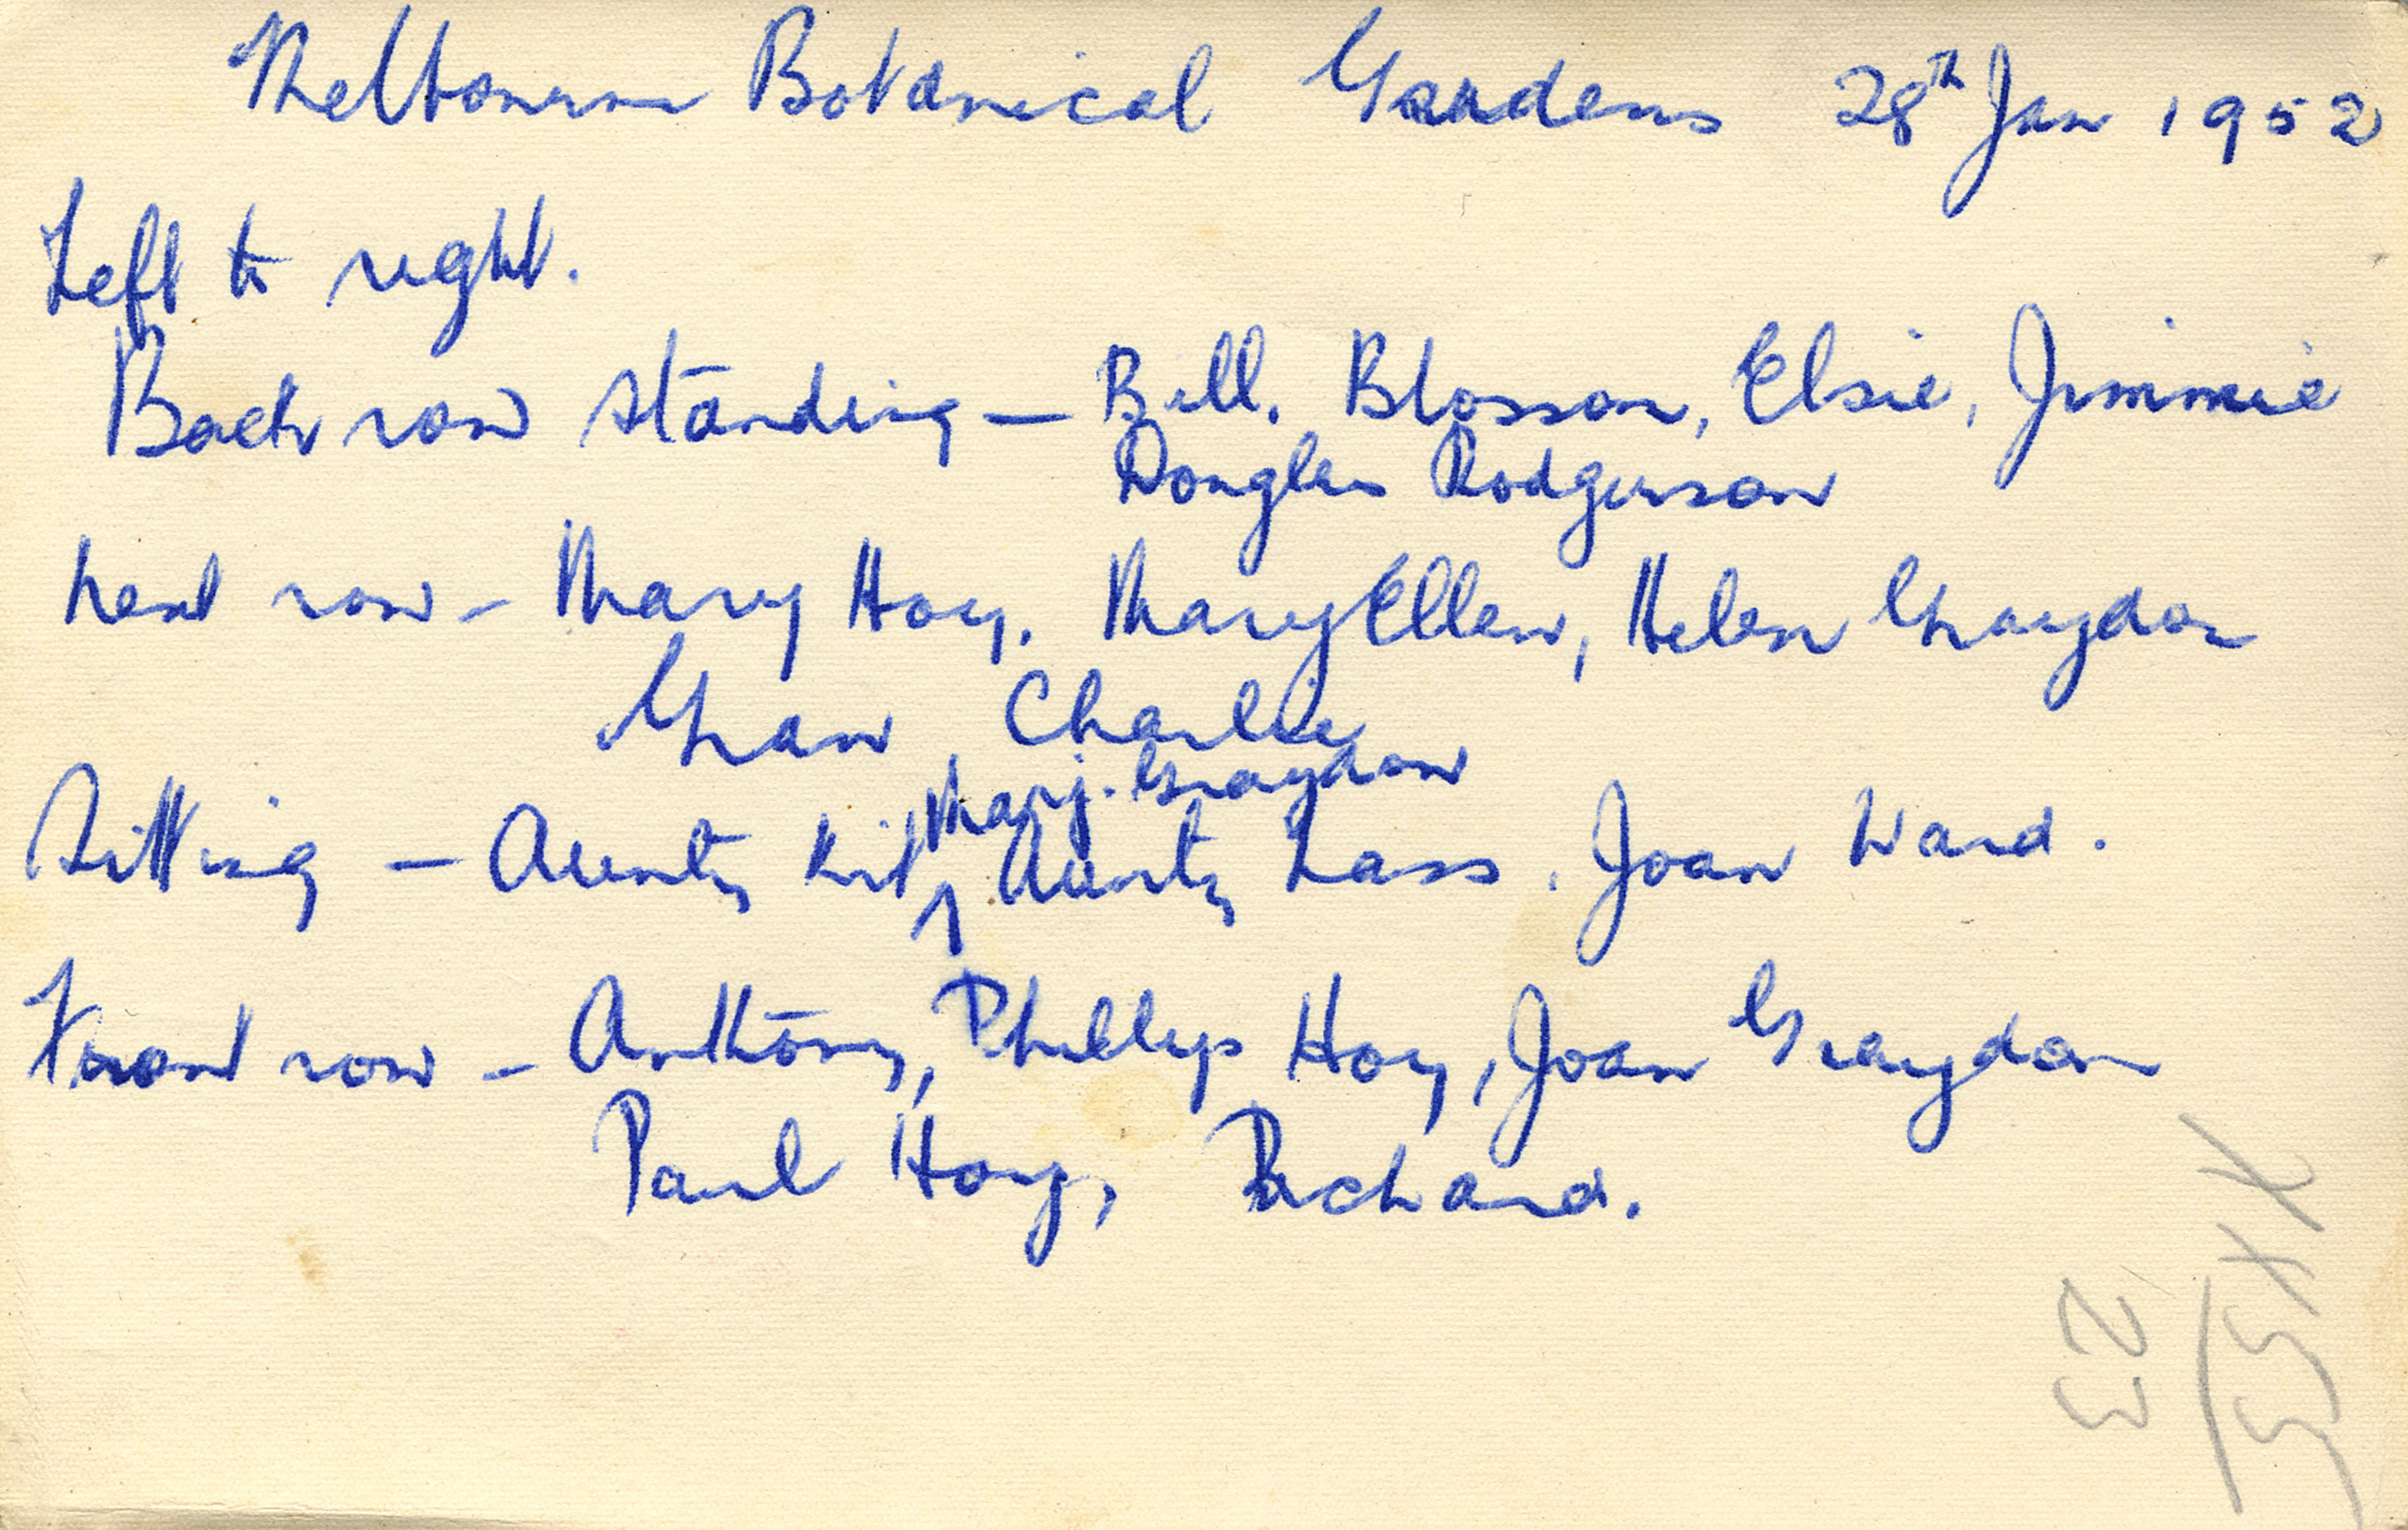 Melbourne Botanical Gardens 28th Jan 1952
Left to right.
Back row standing — Bill, Blossom, Elsie, Jimmie
Douglas Rodgerson
next row - Mary Hoy, Mary Ellen, Helen Graydon
Gran, Charlie
Marj. Graydon
Sitting — Aunty Kit, Aunty Lass, Joan Ward.
Front row - Anthony, Phillip Hoy, Joan Graydon
Paul Hoy, Richard.
23